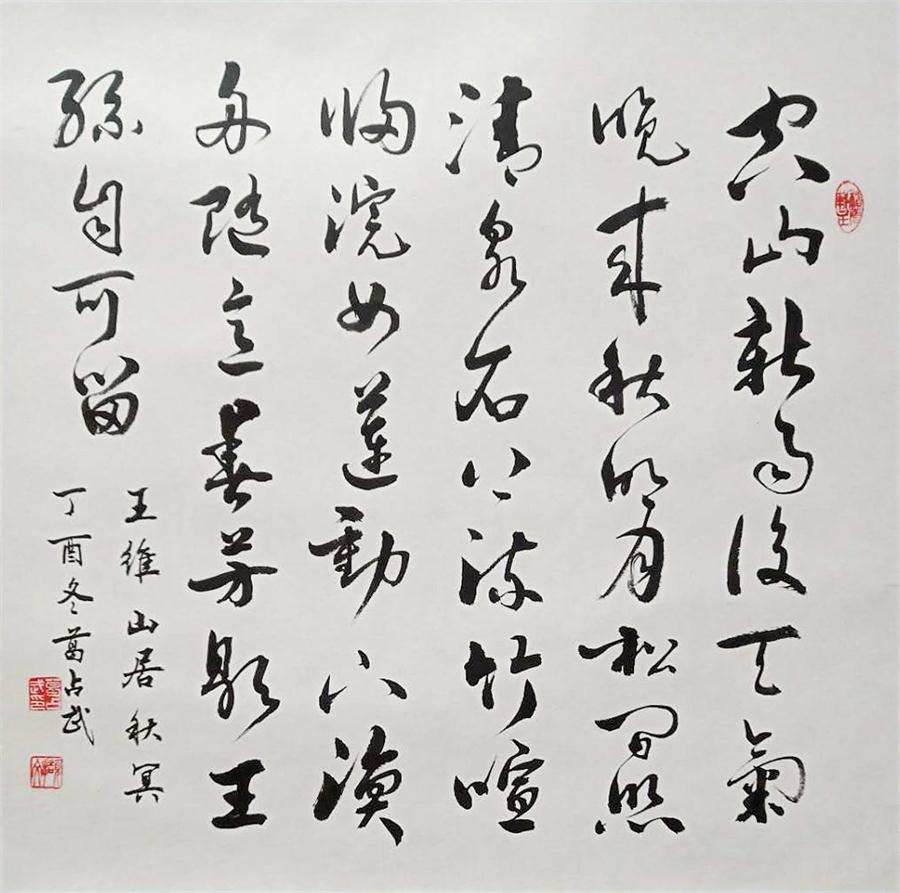 空山新雨後天氣
晚来秋明月松間照
清泉石上流竹喧
歸浣女蓮動下漁
舟隨意春芳歇王
孫自可留
王維山居秋冥
丁酉冬葛占武